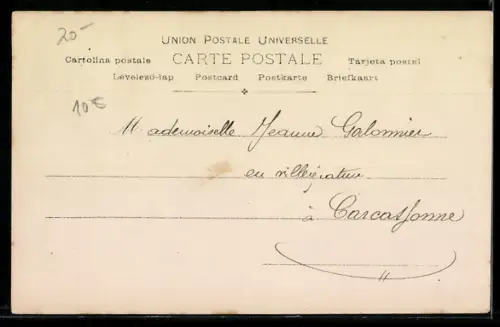 20-
UNION POSTALE UNIVERSELLE
Cartolina postale CARTE POSTALE Tarjeta postal
Levelező-lap Postcard Postkarte Briefkaart
10€
Mademoiselle Jeanne Galonnier
en villégiature
à Carcassonne